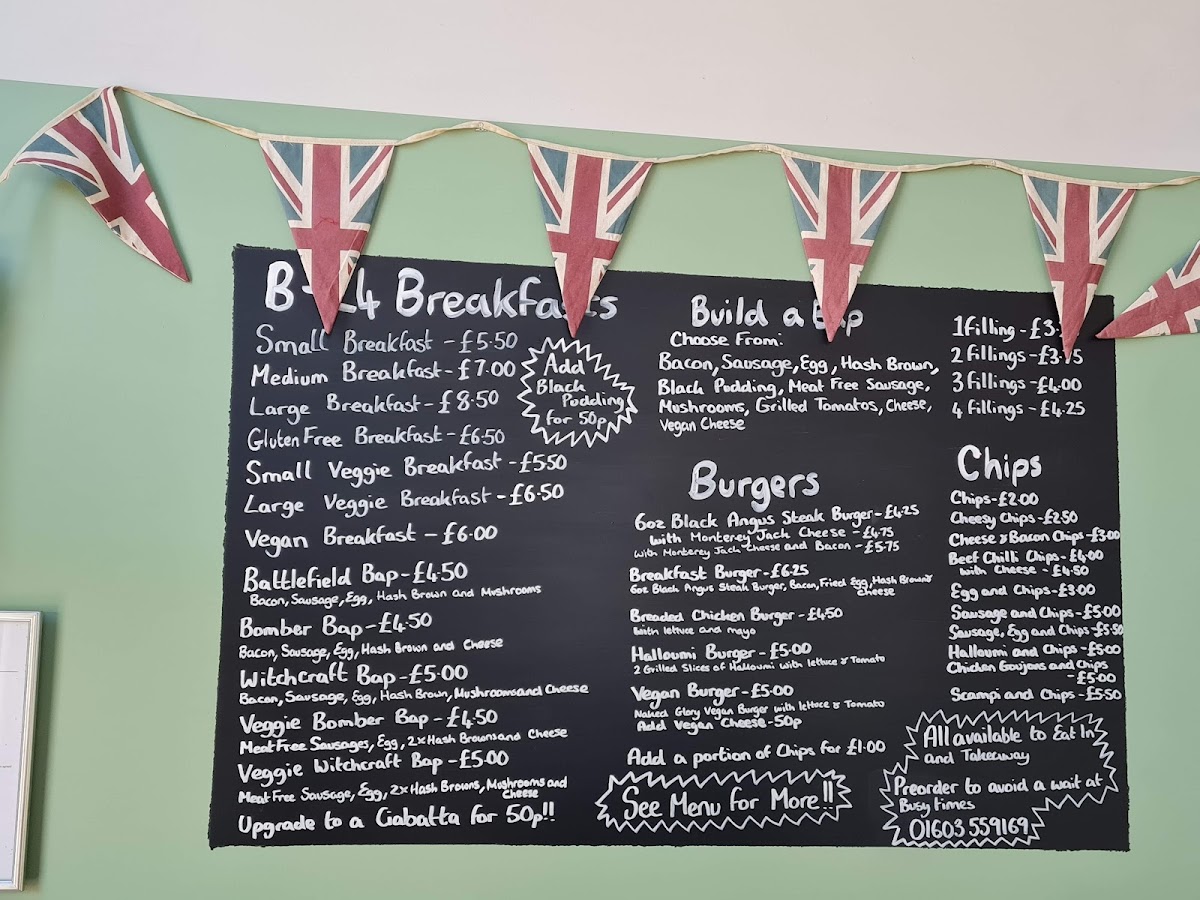 B-24 Breakfasts
Small Breakfast - £5.50
Medium Breakfast - £7.00
Large Breakfast - £8.50
Gluten Free Breakfast - £6.50
Small Veggie Breakfast - £5.50
Large Veggie Breakfast - £6.50
Vegan Breakfast - £6.00
Add
Black
Pudding
for 50p
Battlefield Bap - £4.50
Bacon, Sausage, Egg, Hash Brown and Mushrooms
Bomber Bap - £4.50
Bacon, Sausage, Egg, Hash Brown and Cheese
Witchcraft Bap - £5.00
Bacon, Sausage, Egg, Hash Brown, Mushrooms and Cheese
Veggie Bomber Bap - £4.50
Meat Free Sausages, Egg, 2x Hash Browns and Cheese
Veggie Witchcraft Bap - £5.00
Meat Free Sausage, Egg, 2x Hash Browns, Mushrooms and
Cheese
Upgrade to a Ciabatta for 50p!!
Build a Bap
Choose From:
Bacon, Sausage, Egg, Hash Brown,
Black Pudding, Meat Free Sausage,
Mushrooms, Grilled Tomatos, Cheese,
Vegan Cheese
1 Filling -
2 Fillings -
3 Fillings - £4.00
4 Fillings - £4.25
Burgers
6oz Black Angus Steak Burger - £4.25
with Monterey Jack Cheese - £4.75
with Monterey Jack Cheese and Bacon - £5.75
Breakfast Burger - £6.25
6oz Black Angus Steak Burger, Bacon, Fried Egg, Hash Brown &
Cheese
Breaded Chicken Burger - £4.50
with lettuce and mayo
Halloumi Burger - £5.00
2 Grilled Slices of Halloumi with lettuce & Tomato
Vegan Burger - £5.00
Naked Glory Vegan Burger with lettuce & Tomato
Add Vegan Cheese - 50p
Add a portion of Chips for £1.00
See Menu for More!!
Chips
Chips - £2.00
Cheesy Chips - £2.50
Cheese & Bacon Chips - £3.00
Beef Chilli Chips - £4.00
with Cheese - £4.50
Egg and Chips - £3.00
Sausage and Chips - £5.00
Sausage, Egg and Chips - £5.50
Halloumi and Chips - £5.00
Chicken Goujons and Chips
- £5.00
Scampi and Chips - £5.50
All available to Eat In
and Takeaway
Preorder to avoid a wait at
Busy times
01603 559169